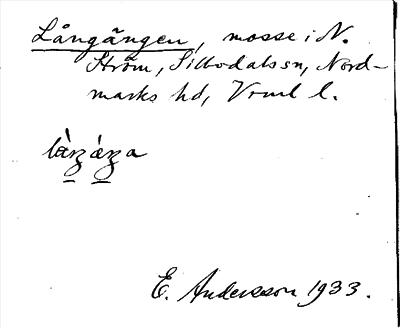 Långängen, mosse i N.
Ström, Sillbodals sn, Nord-
marks hd, Vrml l.
E. Andersson 1933.